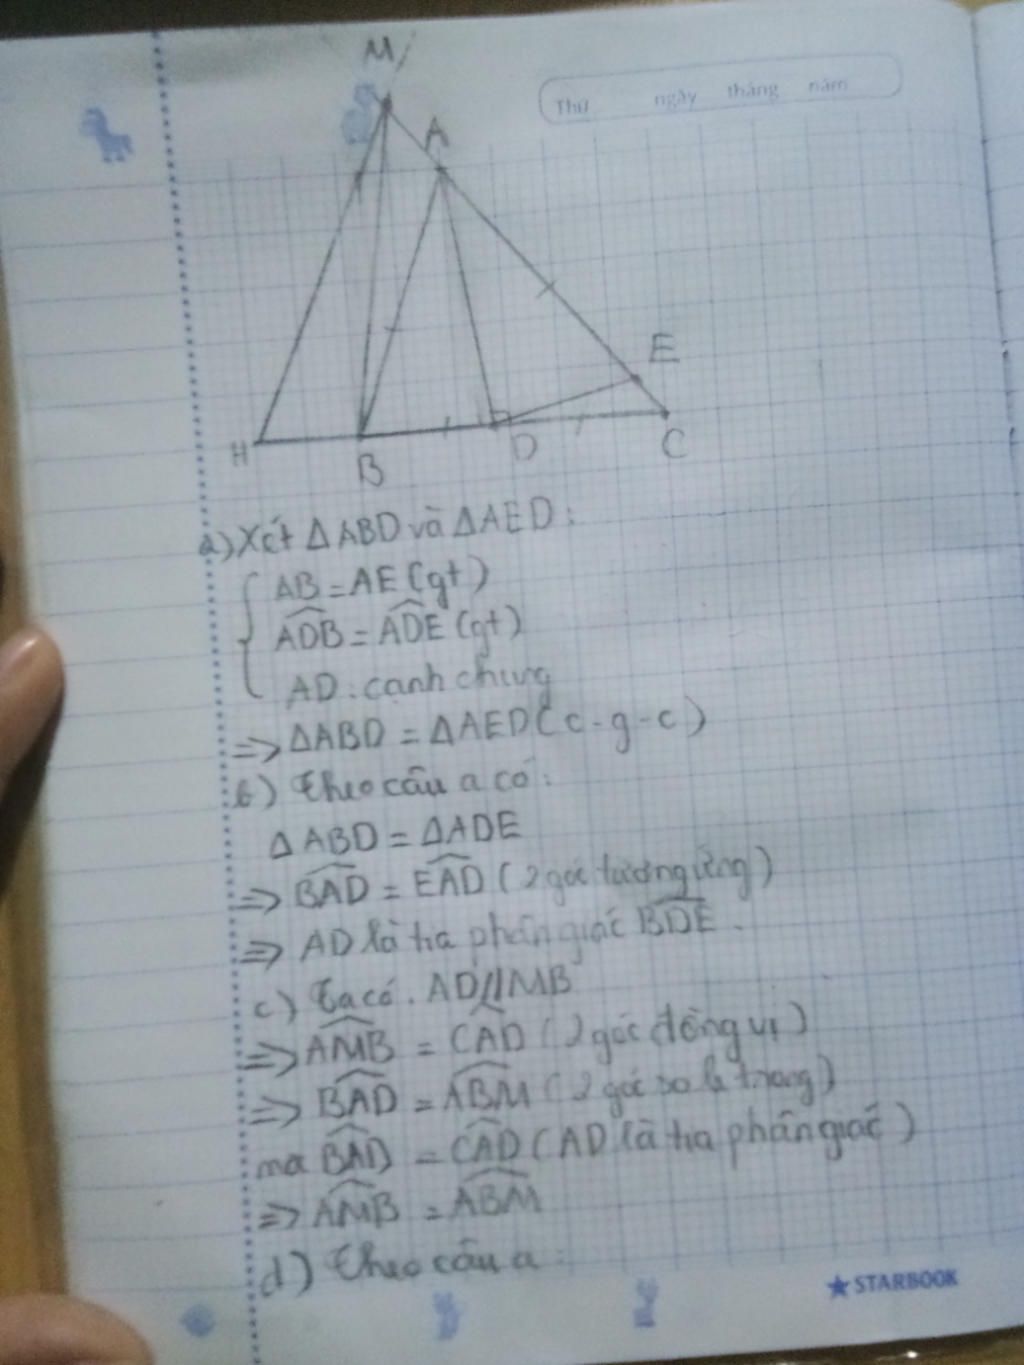 M
A
Thứ ngày tháng năm
E
H
B
D
C
a) Xét ΔABD và ΔAED:
AB = AE (gt)
ADB = ADE (gt)
AD: cạnh chung
=> ΔABD = ΔAED (c-g-c)
b) Theo câu a có:
ΔABD = ΔADE
=> BAD = EAD (2 góc tương ứng)
=> AD là tia phân giác BDE.
c) Ta có. AD//MB
=> AMB = CAD (2 góc đồng vị)
=> BAD = ABM (2 góc so le trong)
mà BAD = CAD (AD là tia phân giác)
=> AMB = ABM
d) Theo câu a:
STARBOOK